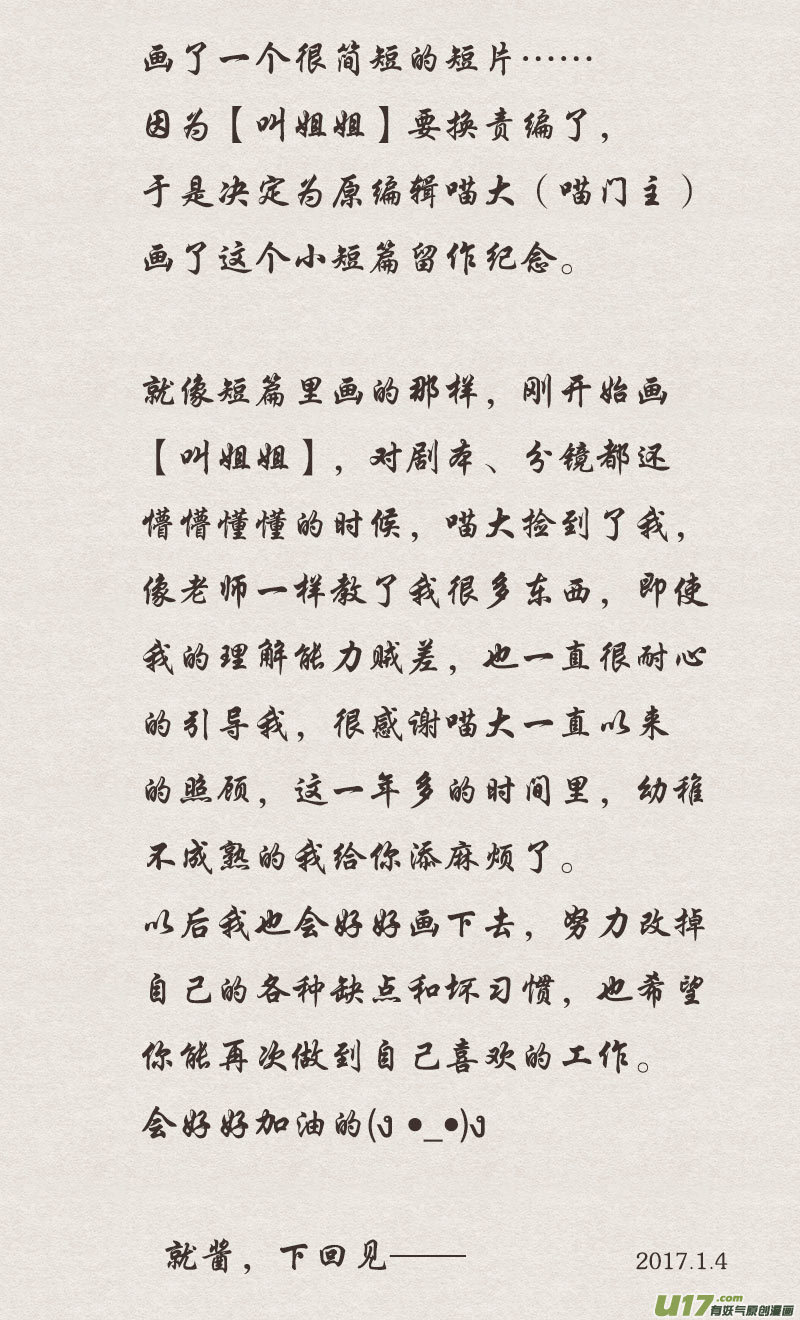 画了一个很简短的短片……
因为【叫姐姐】要换责编了，
于是决定为原编辑喵大（喵门主）
画了这个小短篇留作纪念。
就像短篇里画的那样，刚开始画
【叫姐姐】，对剧本、分镜都还
懵懵懂懂的时候，喵大捡到了我，
像老师一样教了我很多东西，即使
我的理解能力贼差，也一直很耐心
的引导我，很感谢喵大一直以来
的照顾，这一年多的时间里，幼稚
不成熟的我给你添麻烦了。
以后我也会好好画下去，努力改掉
自己的各种缺点和坏习惯，也希望
你能再次做到自己喜欢的工作。
会好好加油的(ง •_•)ง
就酱，下回见——
2017.1.4
U17.com
有妖气原创漫画